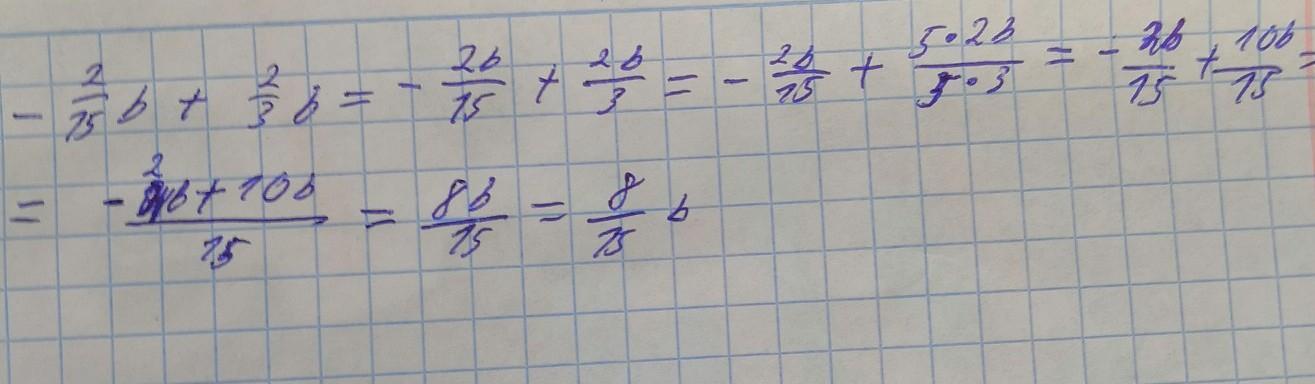 - 2/15 b + 2/3 b = - 2b/15 + 2b/3 = - 2b/15 + 5·2b/5·3 = - 2b/15 + 10b/15 =
= -2b+10b/15 = 8b/15 = 8/15 b